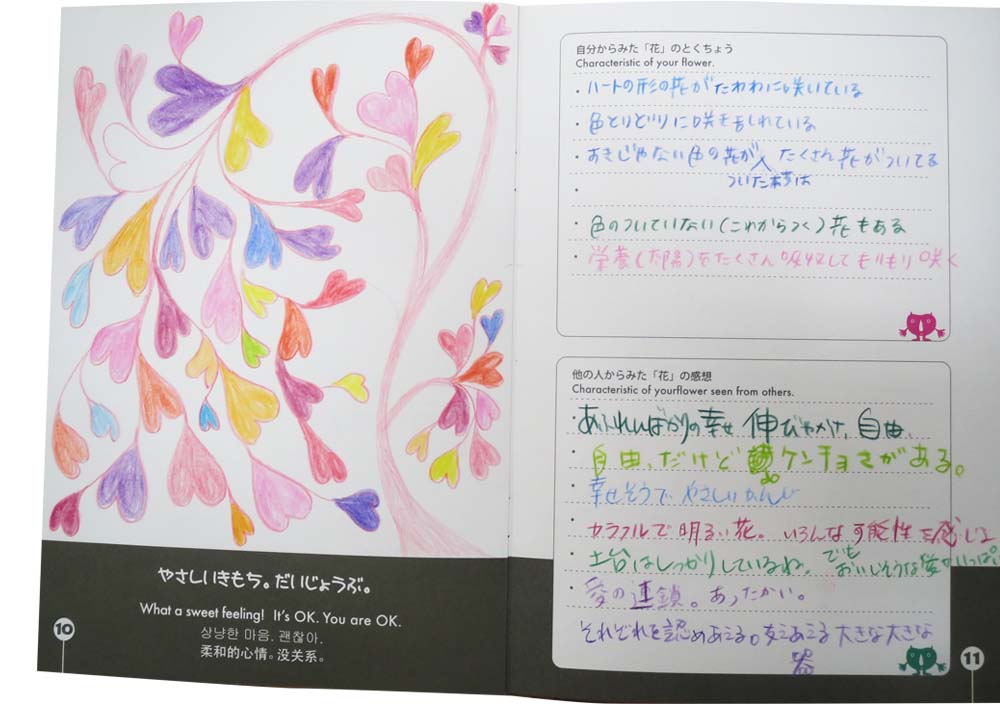 やさしいきもち。だいじょうぶ。
What a sweet feeling! It's OK. You are OK.
상냥한 마음. 괜찮아.
柔和的心情。没关系。
10
自分からみた「花」のとくちょう
Characteristic of your flower.
・ハートの形の花がたわわに咲いている
・色とりどりに咲きみだれている
・すきじゃない色の花が たくさん花がついてる
ついた枝は
・
・色のついていない(これからつく)花もある
・栄養(太陽)をたくさん吸収してもりもり咲く
他の人からみた「花」の感想
Characteristic of yourflower seen from others.
・あふれんばかりの幸せ 伸びやかさ、自由、
・自由、だけど ケンキョさがある。
・幸せそうで やさしいかんじ
・カラフルで明るい花。いろんな可能性を感じる
・土台はしっかりしているね。でも
おいしそうな愛がいっぱい
・愛の連鎖。あったかい。
それぞれを認めあえる。支えあえる 大きな大きな
器
11